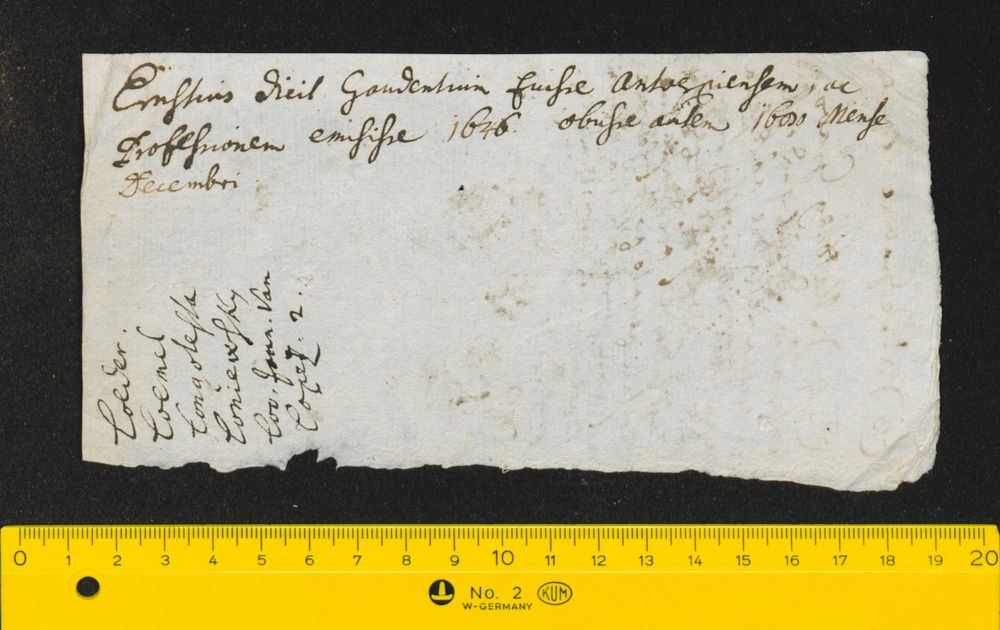 Ernstius dicit Gaudentium fuisse Antverpiensem, ac
Professionem emisisse 1646. obiisse autem 1680 Mense
Decembri
Coeder.
Coemel
Congolessa
Coo. Joan. Van
Copez. 2.
0 1 2 3 4 5 6 7 8 9 10 11 12 13 14 15 16 17 18 19 20
No. 2 KUM
W-GERMANY